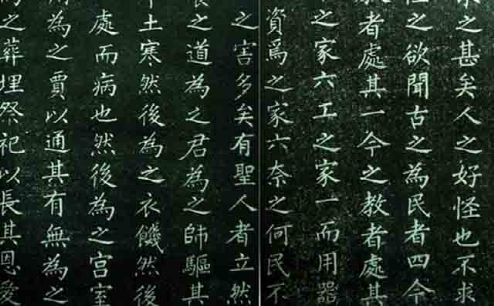 之甚矣人之好怪也不求
怪之欲聞古之為民者四今
教者處其一今之教者處其
之家六工之家一而用器
資焉之家六奈之何民不
之害多矣有聖人者立然
養之道為之君為之師驅其
中土寒然後為之衣饑然後
處而病也然後為之宮室
用為之賈以通其有無為之
之葬埋祭祀以長其恩愛